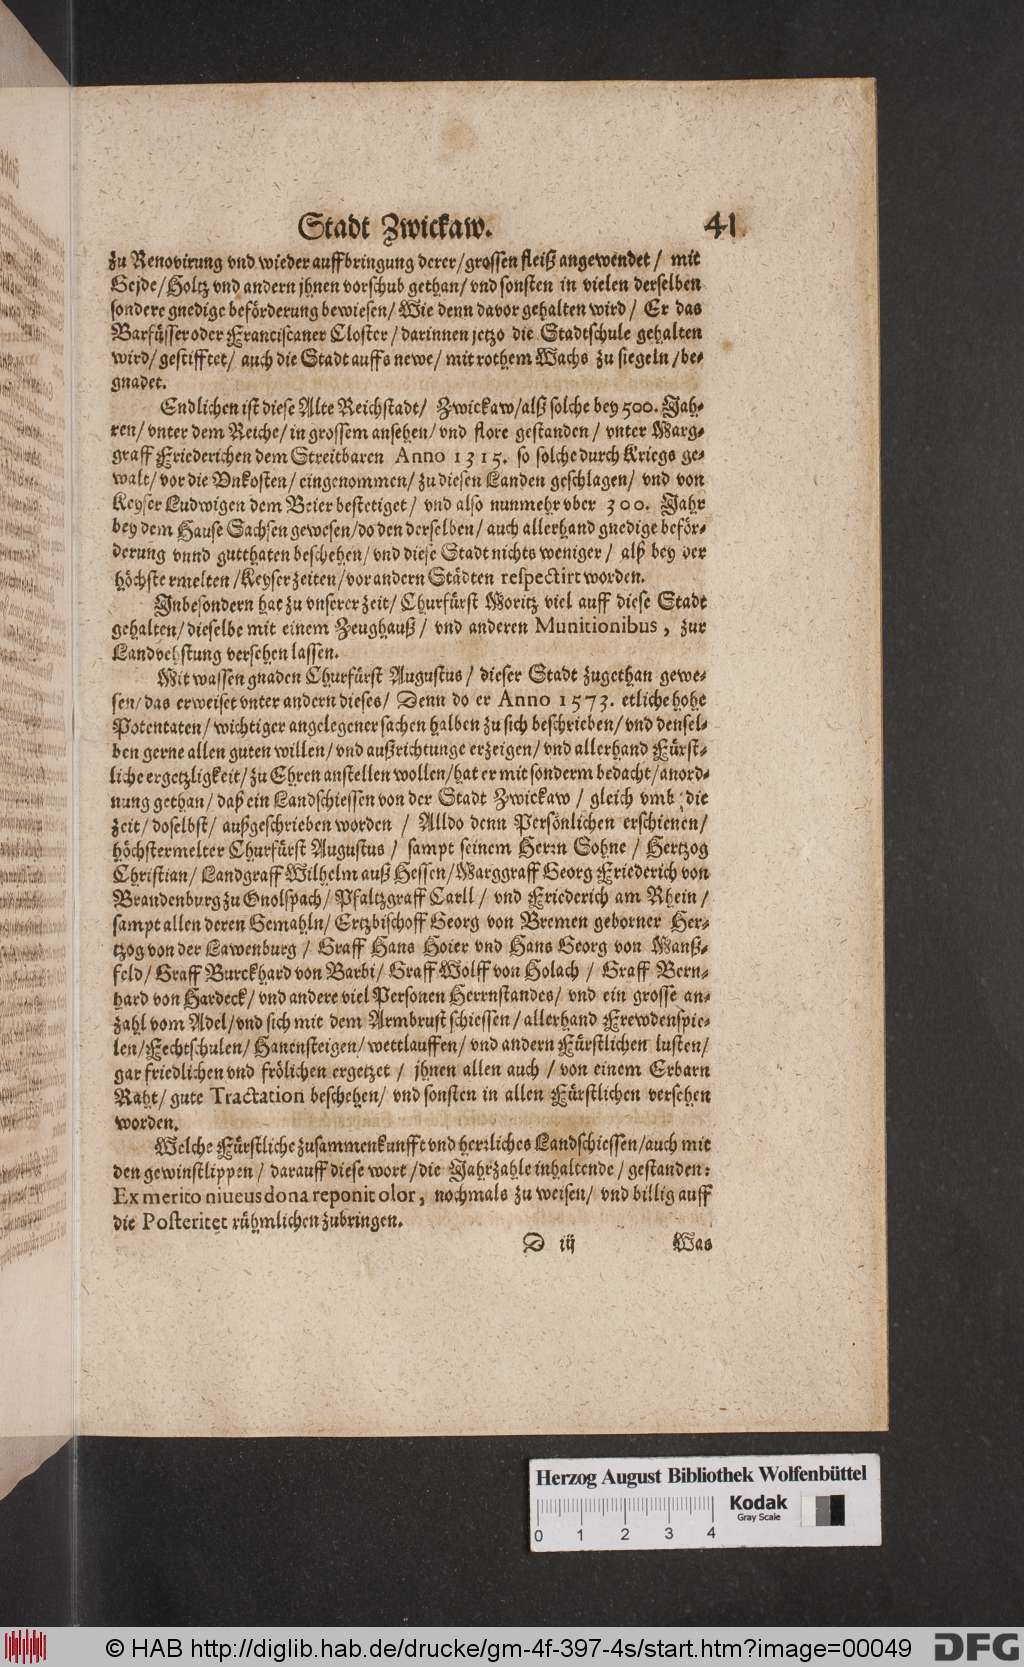 Stadt Zwickaw. 41
zu Renovirung vnd wieder auffbringung derer/ grossen fleiß angewendet/ mit
Gejde/ Holtz vnd andern jhnen vorschub gethan/ vnd sonsten in vielen derselben
sondere gnedige beförderung bewiesen/ Wie denn davor gehalten wird/ Er das
Barfüsser oder Franciscaner Closter/ darinnen jetzo die Stadtschule gehalten
wird/ gestifftet/ auch die Stadt auffs newe/ mit rothem Wachs zu siegeln/ be-
gnadet.
Endlichen ist diese Alte Reichstadt/ Zwickaw/ alß solche bey 500. Jah-
ren/ vnter dem Reiche/ in grossem ansehen/ vnd flore gestanden/ vnter Marg-
graff Friederichen dem Streitbaren Anno 1315. so solche durch Kriegs ge-
walt/ vor die Vnkosten/ eingenommen/ zu diesen Landen geschlagen/ vnd von
Keyser Ludwigen dem Beier bestetiget/ vnd also nunmehr vber 300. Jahr
bey dem Hause Sachsen gewesen/ do den derselben/ auch allerhand gnedige beför-
derung vnnd gutthaten beschehen/ vnd diese Stadt nichts weniger/ alß bey der
höchstermelten/ Keyser zeiten/ vor andern Städten respectirt worden.
Inbesondern hat zu vnserer zeit/ Churfürst Moritz viel auff diese Stadt
gehalten/ dieselbe mit einem Zeughauß/ vnd anderen Munitionibus, zur
versehen lassen.
Mit wassen gnaden Churfürst Augustus/ dieser Stadt zugethan gewe-
sen/ das erweiset vnter andern dieses/ Denn do er Anno 1573. etliche hohe
Potentaten/ wichtiger angelegener sachen halben zu sich beschrieben/ vnd densel-
ben gerne allen guten willen/ vnd außrichtunge erzeigen/ vnd allerhand Fürst-
liche ergetzligkeit/ zu Ehren anstellen wollen/ hat er mit sonderm bedacht/ anord-
nung gethan/ daß ein Landschiessen von der Stadt Zwickaw/ gleich vmb die
zeit/ doselbst/ außgeschrieben worden/ Alldo denn Persönlichen erschienen/
höchstermelter Churfürst Augustus/ sampt seinem Herrn Sohne/ Hertzog
Christian/ Landgraff Wilhelm auß Hessen/ Marggraff Georg Friederich von
Brandenburg zu Onolspach/ Pfaltzgraff Carll/ vnd Friederich am Rhein/
sampt allen deren Gemahln/ Ertzbischoff Georg von Bremen geborner Her-
tzog von der Lawenburg/ Graff Hans Hoier vnd Hans Georg von Manß-
feld/ Graff Burckhard von Barbi/ Graff Wolff von Holach/ Graff Bern-
hard von Hardeck/ vnd andere viel Personen Herrnstandes/ vnd ein grosse an-
zahl vom Adel/ vnd sich mit dem Armbrust schiessen/ allerhand Frewdenspie-
len/ Fechtschulen/ Hanensteigen/ wettlauffen/ vnd andern Fürstlichen lusten/
gar friedlichen vnd frölichen ergetzet/ jhnen allen auch/ von einem Erbarn
Raht/ gute Tractation beschehen/ vnd sonsten in allen Fürstlichen versehen
worden.
Welche Fürstliche zusammenkunfft vnd herrliches Landschiessen/ auch mit
den gewinstlippen/ darauff diese wort/ die Jahrzahle inhaltende/ gestanden:
Ex merito niueus dona reponit olor, nochmals zu weisen/ vnd billig auff
die Posteritet rühmlichen zubringen.
D iij Was
Herzog August Bibliothek Wolfenbüttel
Kodak
Gray Scale
0 1 2 3 4
© HAB http://diglib.hab.de/drucke/gm-4f-397-4s/start.htm?image=00049
DFG